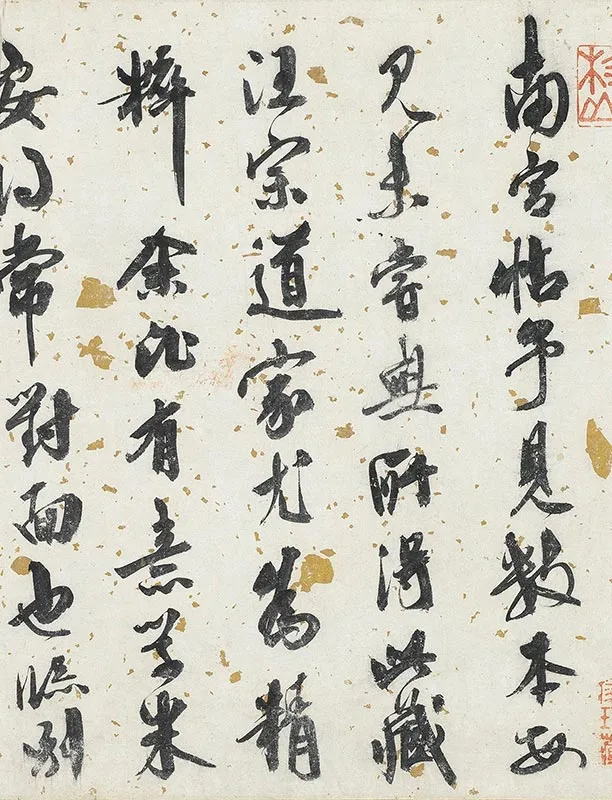 南宮帖予見數本每
見未嘗無所得此藏
汪宗道家尤為精
粹余比有意學米
安得常對面也臨別